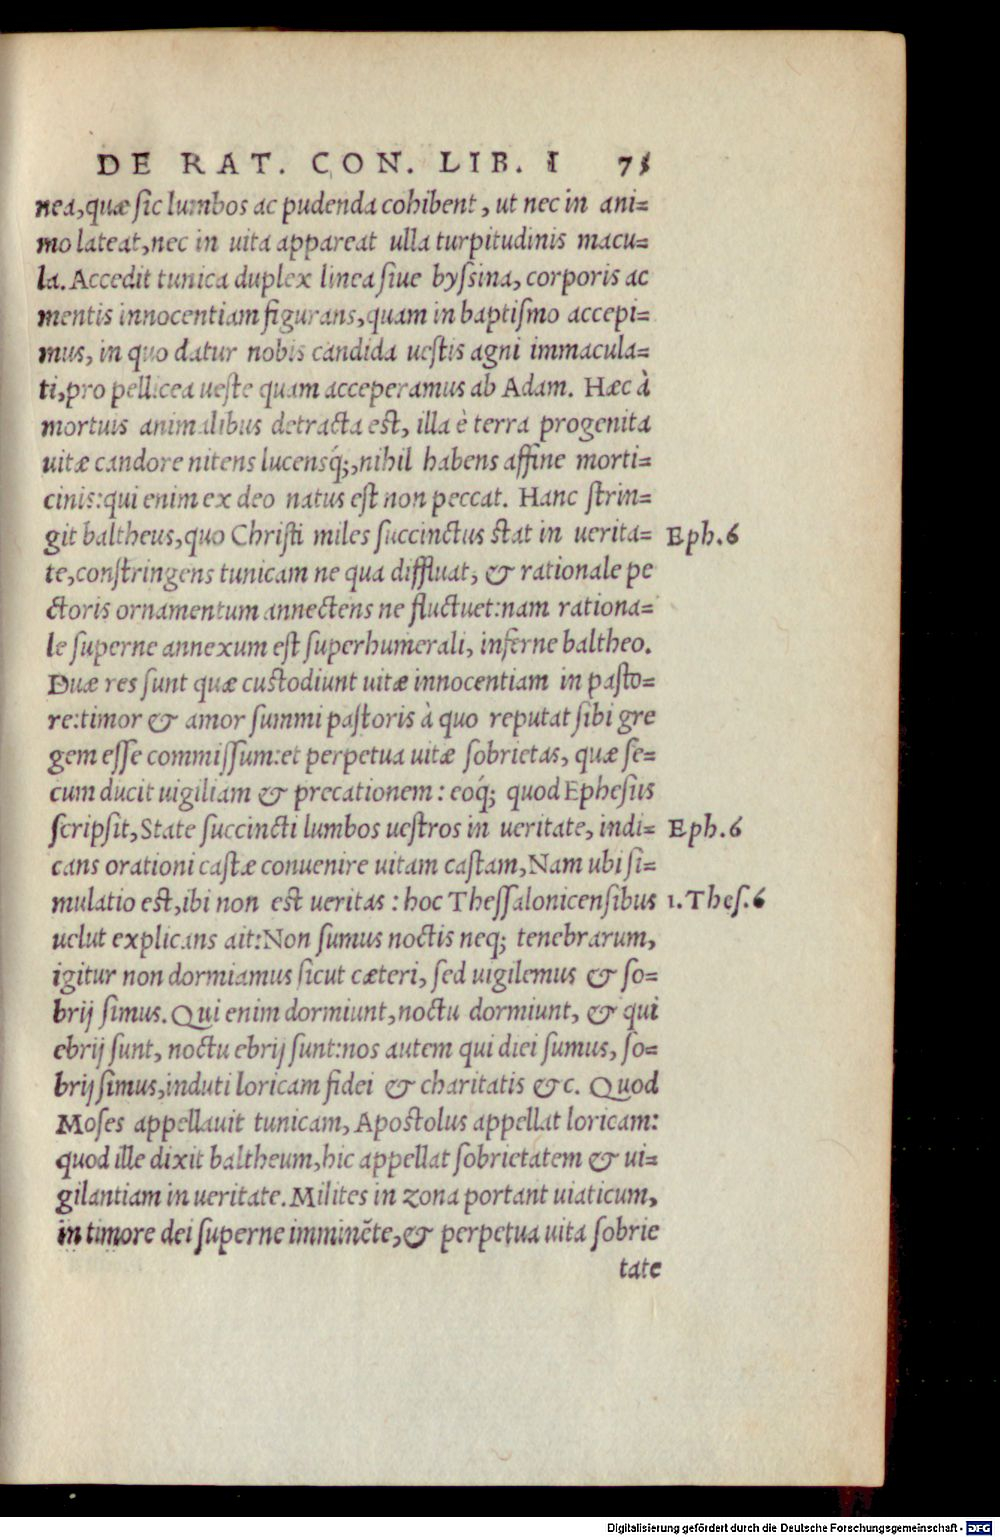 DE RAT. CON. LIB. I 71
nea,quæ sic lumbos ac pudenda cohibent, ut nec in ani=
mo lateat,nec in uita appareat ulla turpitudinis macu=
la. Accedit tunica duplex linea siue byssina, corporis ac
mentis innocentiam figurans,quam in baptismo accepi=
mus, in quo datur nobis candida uestis agni immacula=
ti,pro pellicea ueste quam acceperamus ab Adam. Hæc à
mortuis animalibus detracta est, illa è terra progenita
uitæ candore nitens lucensq́;,nihil habens affine morti=
cinis:qui enim ex deo natus est non peccat. Hanc strin=
git baltheus,quo Christi miles succinctus stat in uerita= Eph.6
te,constringens tunicam ne qua diffluat, & rationale pe
ctoris ornamentum annectens ne fluctuet:nam rationa=
le superne annexum est superhumerali, inferne baltheo.
Duæ res sunt quæ custodiunt uitæ innocentiam in pasto=
re:timor & amor summi pastoris à quo reputat sibi gre
gem esse commissum:et perpetua uitæ sobrietas, quæ se=
cum ducit uigiliam & precationem: eoq́; quod Ephesiis
scripsit,State succincti lumbos uestros in ueritate, indi= Eph.6
cans orationi castæ conuenire uitam castam,Nam ubi si=
mulatio est,ibi non est ueritas: hoc Thessalonicensibus 1.Thes.6
uelut explicans ait:Non sumus noctis neq; tenebrarum,
igitur non dormiamus sicut cæteri, sed uigilemus & so=
brij simus. Qui enim dormiunt,noctu dormiunt, & qui
ebrij sunt, noctu ebrij sunt:nos autem qui diei sumus, so=
brij simus,induti loricam fidei & charitatis &c. Quod
Moses appellauit tunicam, Apostolus appellat loricam:
quod ille dixit baltheum,hic appellat sobrietatem & ui=
gilantiam in ueritate. Milites in zona portant uiaticum,
in timore dei superne imminẽte,& perpetua uita sobrie
tate
Digitalisierung gefördert durch die Deutsche Forschungsgemeinschaft - DFG